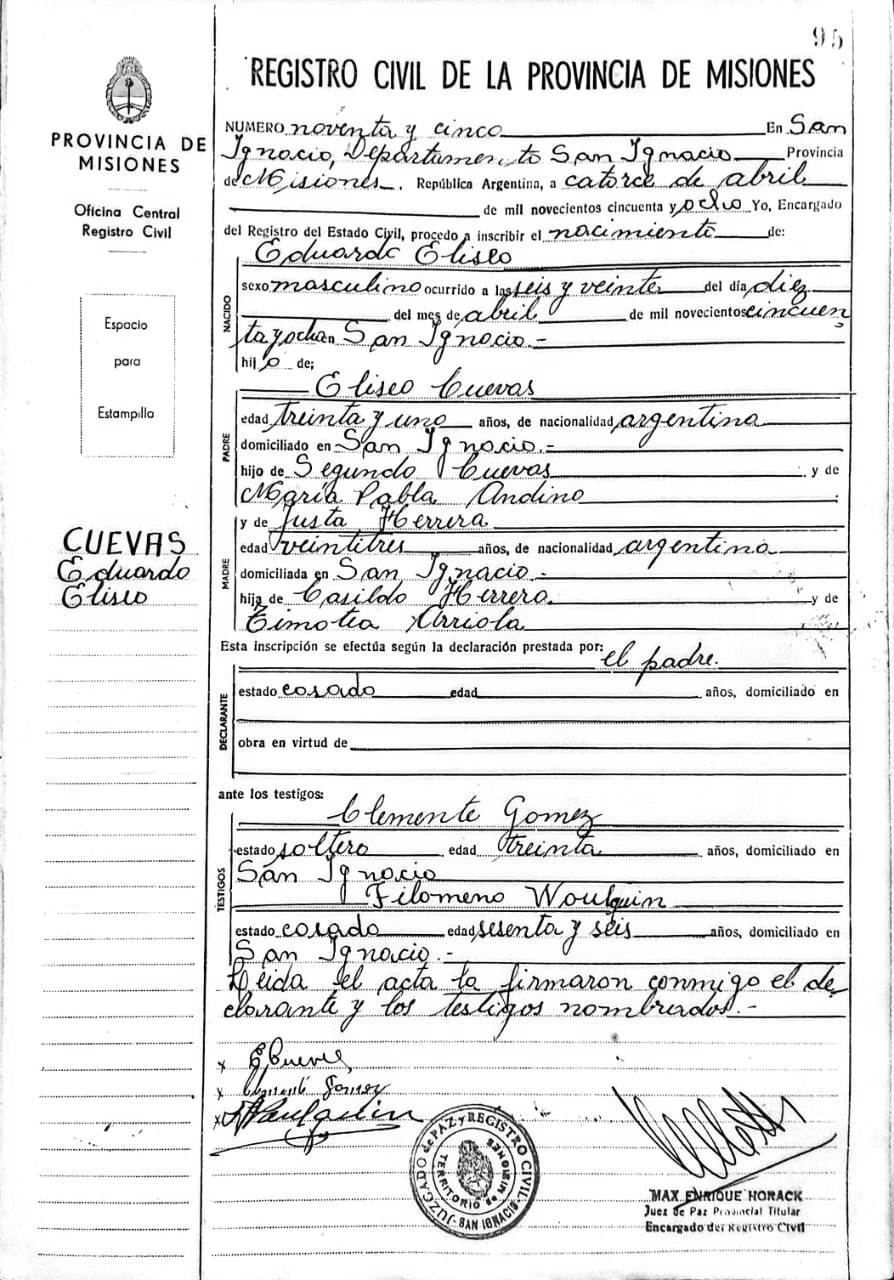 95
REGISTRO CIVIL DE LA PROVINCIA DE MISIONES
PROVINCIA DE
MISIONES
Oficina Central
Registro Civil
Espacio
para
Estampilla
CUEVAS
Eduardo
Eliseo
NUMERO noventa y cinco En San
Ignacio, Departamento San Ignacio Provincia
de Misiones. República Argentina, a catorce de abril
de mil novecientos cincuenta y ocho Yo, Encargado
del Registro del Estado Civil, procedo a inscribir el nacimiento de:
Eduardo Eliseo
NACIDO
sexo masculino ocurrido a las seis y veinte del día diez
del mes de abril de mil novecientos cincuen
ta y ocho en San Ignacio.-
hijo de;
Eliseo Cuevas
PADRE
edad treinta y uno años, de nacionalidad argentina
domiciliado en San Ignacio.-
hijo de Segundo Cuevas y de
María Pabla Andino
y de Justa Herrera
MADRE
edad veintitres años, de nacionalidad argentina
domiciliada en San Ignacio.-
hija de Casildo Herrera y de
Timotea Arriola
Esta inscripción se efectúa según la declaración prestada por: el padre.
DECLARANTE
estado casado edad años, domiciliado en
obra en virtud de
ante los testigos:
Clemente Gomez
TESTIGOS
estado soltero edad treinta años, domiciliado en
San Ignacio
Filomeno Woulquin
estado casado edad sesenta y seis años, domiciliado en
San Ignacio.-
Leida el acta la firmaron conmigo el de
clarante y los testigos nombrados.-
x E Cuevas
x Clemente Gomez
x
JUZGADO de PAZ y REGISTRO CIVIL
TERRITORIO de MISIONES
SAN IGNACIO
MAX ENRIQUE HORACK
Juez de Paz Provincial Titular
Encargado del Registro Civil